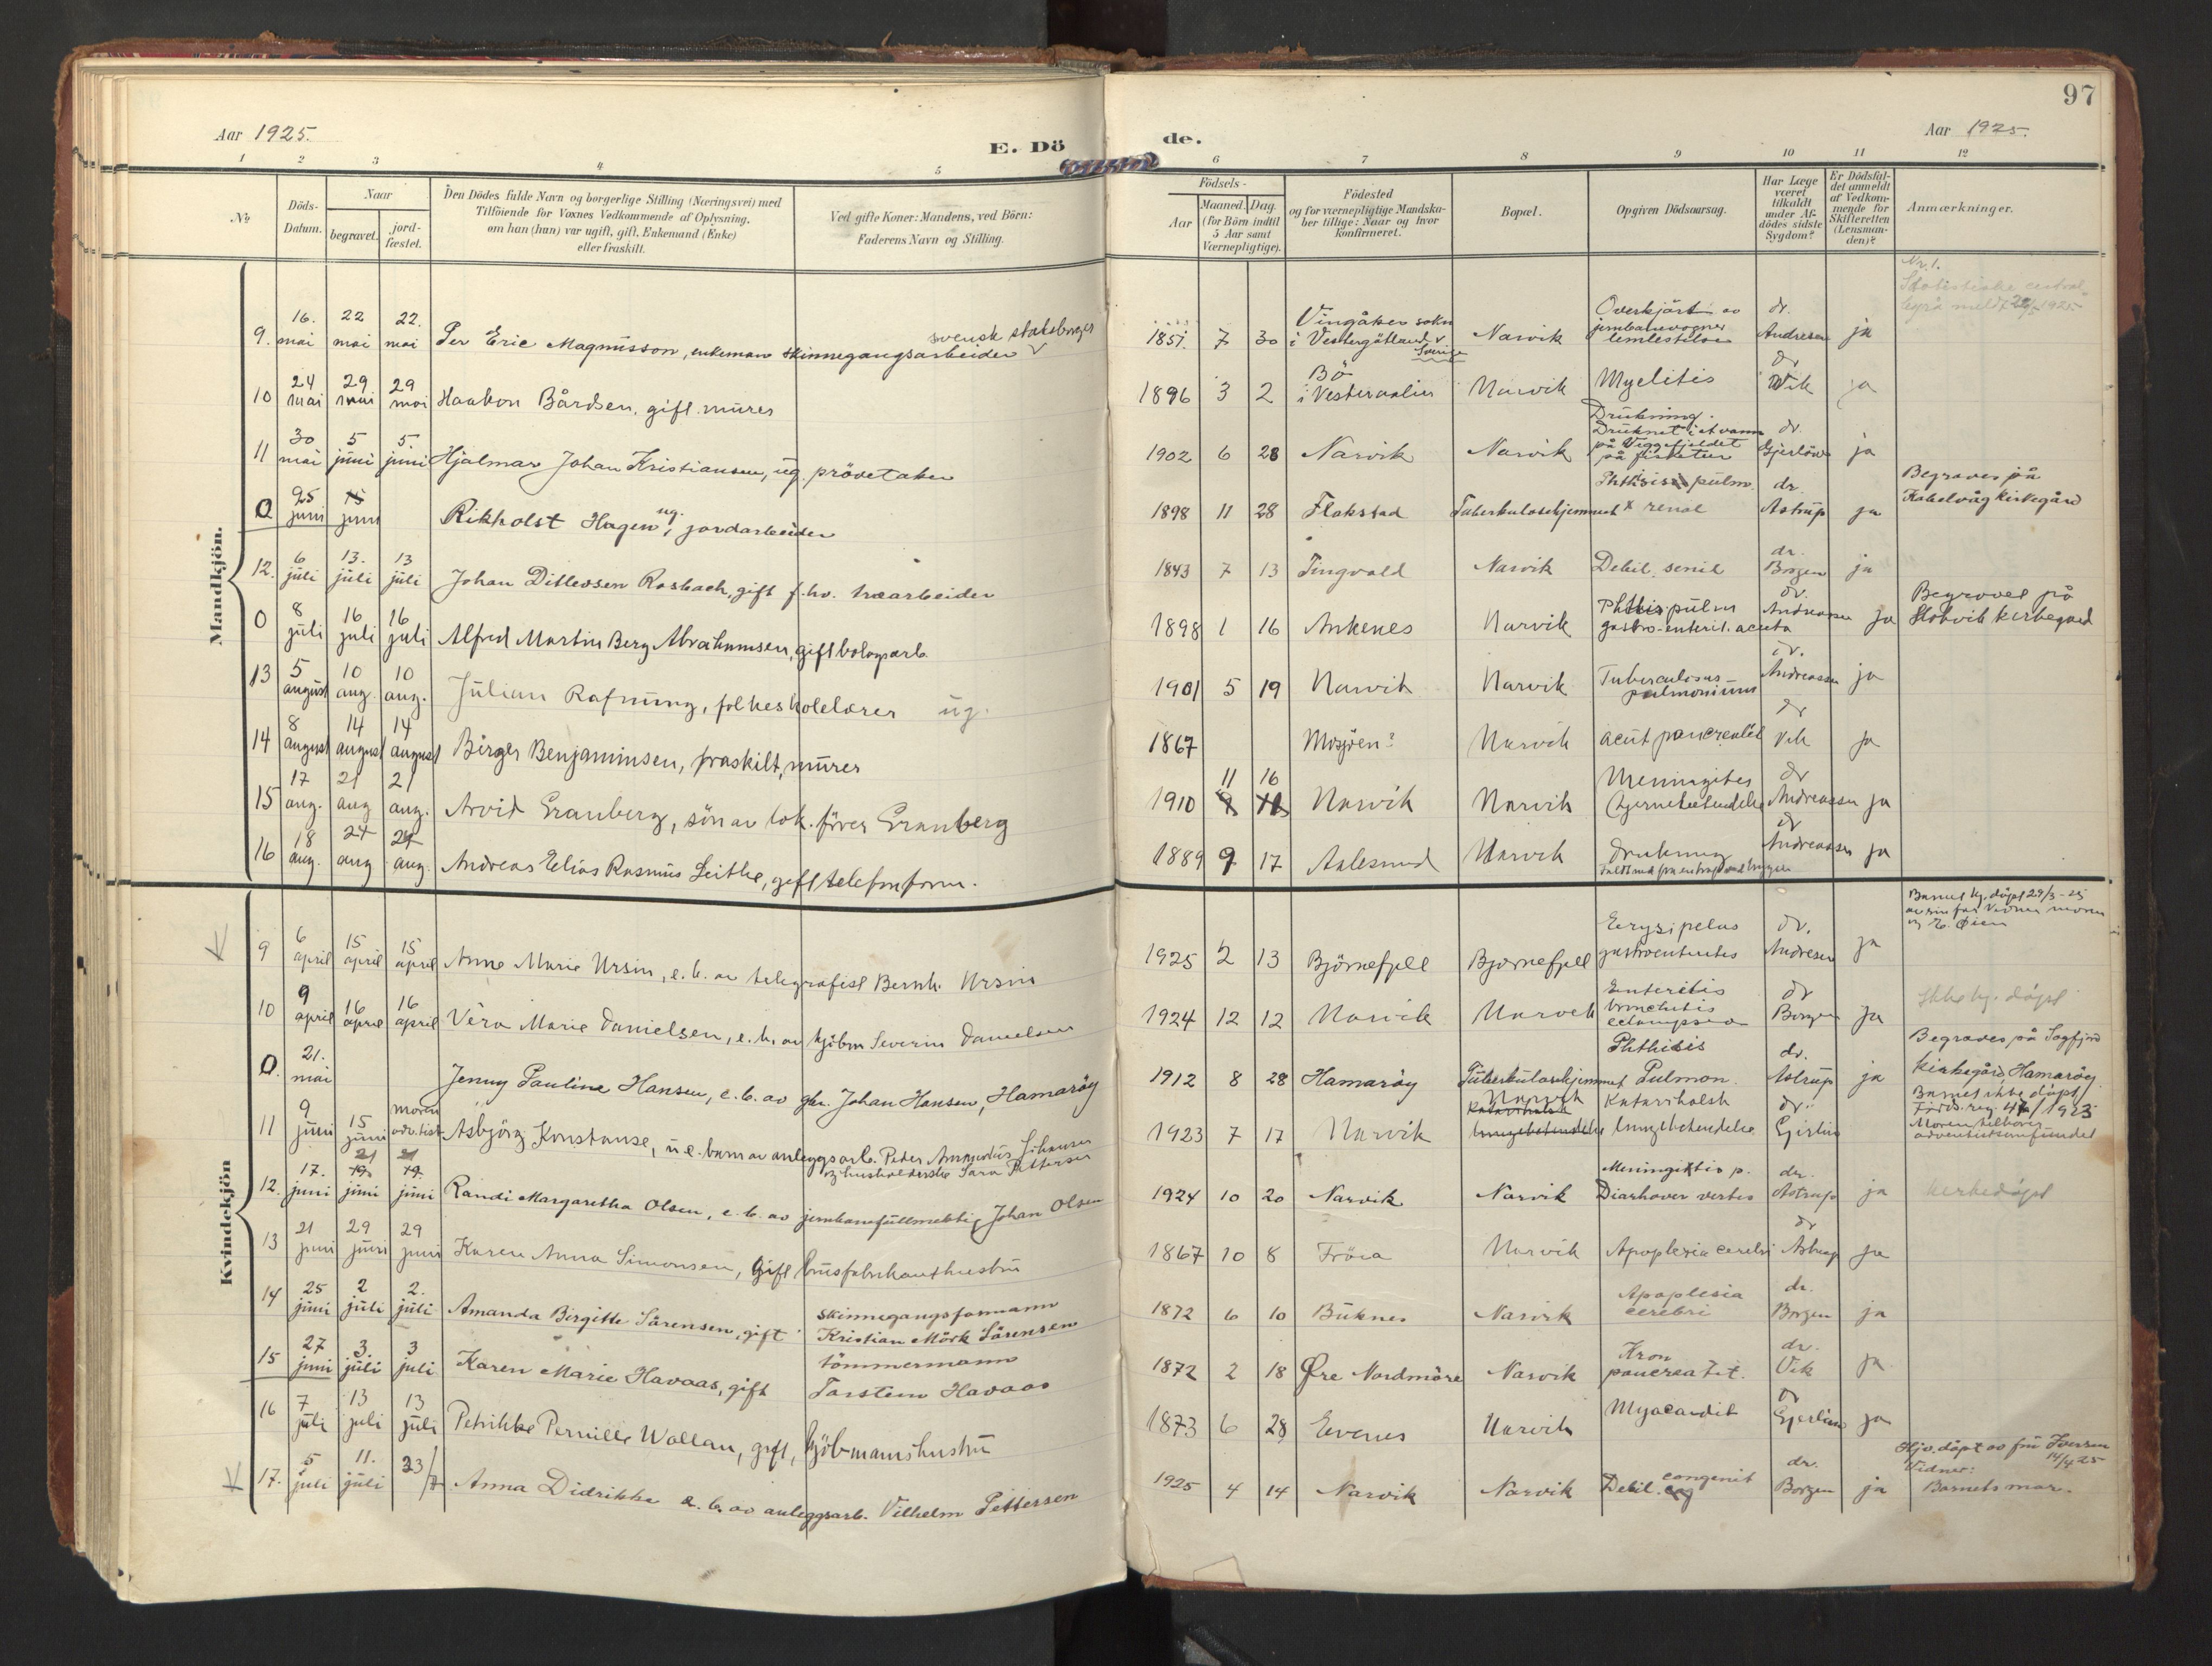 97
Aar 1925.
E. Dö
de.
Aar 1925.
1 2 3 4 5 6 7 8 9 10 11 12
No
Döds-
Datum.
Naar
begravet.
jord-
fæstet.
Den Dödes fulde Navn og borgerlige Stilling (Næringsvei) med
Tilföiende for Voxnes Vedkommende af Oplysning.
om han (hun) var ugift, gift, Enkemand (Enke)
eller fraskilt.
Ved gifte Koner: Mandens, ved Börn:
Faderens Navn og Stilling.
Födsels-
Aar
Maaned. Dag.
(for Börn indtil
5 Aar samt
Værnepligtige).
Födested
og for værnepligtige Mandska-
ber tillige: Naar og hvor
Konfirmeret.
Bopæl.
Opgiven Dödsaarsag.
Har Læge
været
tilkaldt
under Af-
dödes sidste
Sygdom?
Er Dödsfal-
det anmeldt
af Vedkom-
mende for
Skifteretten
(Lensman-
den)?
Anmærkninger.
Mandkjön.
Nr. 1.
9. 16. mai 22 mai 22. mai Per Eric Magnusson, enkeman skinnegangsarbeider svensk statsborger 1851. 7 30 Vingåker sokn i Vestergötland Sverige Narvik Overkjört av jernbanevogner lemlestelse dr. Andresen ja
10 24 mai 29 mai 29 mai Haakon Bårdsen, gift. murer 1896 3 2 Bö i Vesteraalen Narvik Myelitis dr Vik ja
11 30 mai 5 juni 5. juni Hjalmar Johan Kristiansen, ug. prövetaker 1902 6 28 Narvik Narvik Drukning. Druknet i et vann på Veggefjeldet på fisketur dr. Gjerlöw ja
0 25 juni Rikholst Hagen, ug. jordarbeider 1898 11 28 Flakstad Tuberkulosehjemmet Phthisis pulm. renal dr. Astrup ja Begraves på Kabelvåg kirkegård
12. 6 juli 13. juli 13 juli Johan Ditlevsen Rosbach, gift f.hv. træarbeider 1843 7 13 Tingvold Narvik Debil. senil dr. Borgen ja
0 8 juli 16 juli 16 juli Alfred Martin Berg Abrahamsen, gift bologsarb. 1898 1 16 Ankenes Narvik Phthis. pulm gastro-enterit. acuta dr. Andreassen ja Begravet på kirkegaard
13 5 august 10 aug. 10 aug. Julian Rafnung, folkeskolelærer ug. 1901 5 19 Narvik Narvik Tuberculosus pulmonium dr. Andreassen ja
14 8 august 14 august 14 august Birger Benjaminsen, fraskilt, murer 1867 Mosjöen? Narvik acut pancreatit dr Vik ja
15 17 aug. 21 aug 21 aug. Arvid Granberg, sön av lok. förer Granberg 1910 11 16 Narvik Narvik Meningites (hjernebetendelse dr Andreassen ja
16 18 aug. 24 aug 24 aug. Andreas Elias Rasmus Leithe, gift telefonform. 1889 9 17 Aalesund Narvik drukning dr Andreassen ja
Kvindekjön
9 6 april 15 april 15 april Anne Marie Ursin, e. b. av telegrafist Bernh. Ursin 1925 2 13 Björnefjell Bjørnefjell Erysipelas gastroenterites dr. Andresen ja Barnet hj. döpt 29/3-25 av sin far Vidner moren og E. Øien
10 9 april 16 april 16 april Vera Marie Danielsen, e. b. av kjöbm Severin Danielsen 1924 12 12 Narvik Narvik Enteritis bronchitis eclampsia dr Borgen ja Ikke hj. döpt
0. 21. mai Jenny Pauline Hansen, e. b. av gbr. Johan Hansen, Hamaröy 1912 8 28 Hamaröy Tuberkulosehjemmet Phthisis Pulmon. dr. Astrup ja Begraves på Sagfjord kirkegård Hamaröy
11 9 juni 15 juni moren adv.tist Asbjörg Konstanse, u. e. barn av anleggsarb. Peder Johansen og husholderske Sara Pettersen 1923 7 17 Narvik Narvik Katarrhalsk lungebetendelse dr. Gjerlöw Barnet ikke döpt/ Föds. reg. 47/1923 Moren tilhörer adventistsamfundet
12. 17. juni 21 juni 21 juni Randi Margaretha Olsen, e. b. av jernbanefullmektig Johan Olsen 1924 10 20 Narvik Narvik Meningitis p. Diarhover vertes dr. Astrup ja kirkedöpt
13 21 juni 29 juni 29 juni Karen Anna Simonsen, Gift brusfabrikanthustru 1867 10 8 Fröia Narvik Apoplexia cerebri dr Astrup ja
14 25 juni 2 juli 2. juli Amanda Birgitte Sörensen, gift skinnegangsformann Kristian Mörk Sörensen 1872 6 10 Buknes Narvik Apoplexia cerebri dr. Borgen ja
15 27 juni 3. juli 3 juli Karen Marie Havaas, gift tömmermann Torstein Havaas 1872 2 18 Øre Nordmöre Narvik Kron pancreatit. dr. Vik ja
16 7 juli 13 juli 13 juli Petrikke Pernille Wollan, gift, kjöbmannshustru 1873 6 28 Evenes Narvik Myocardit dr Gjerlöw ja
17. 5 juli 11. juli 23/7 Anna Didrikke e. b. av anleggsarb. Vilhelm Pettersen 1925 4 14 Narvik Narvik Debil. congenit dr. Borgen ja Hjv. döpt av fru Iversen 14/4 25 Vidner: Barnets mor.